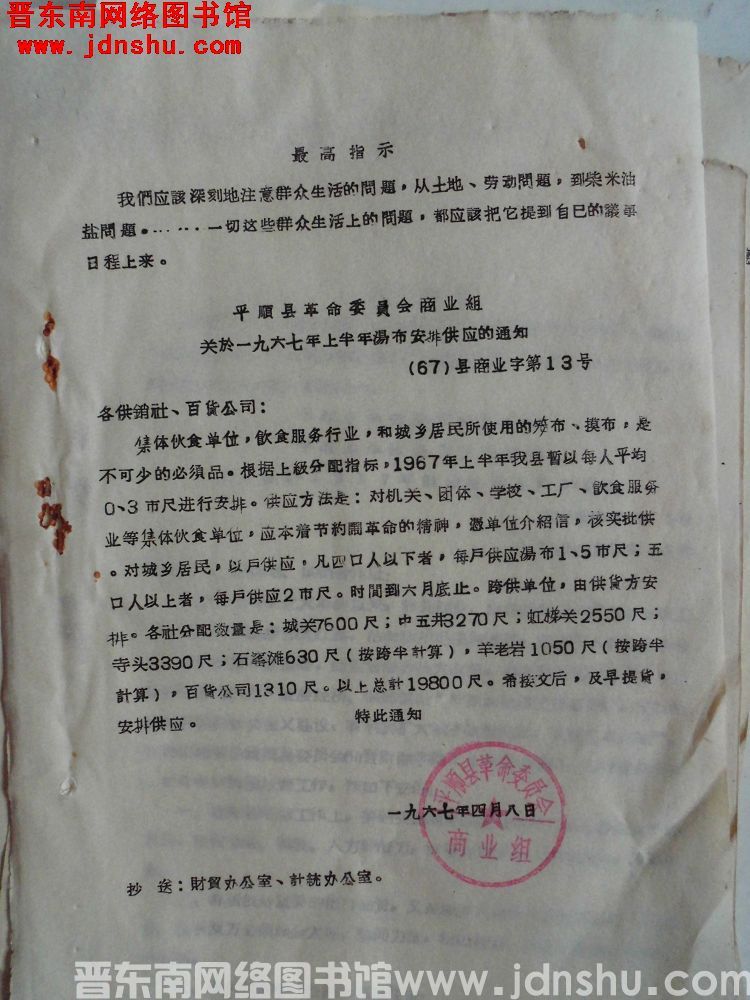 晋东南网络图书馆
www.jdnshu.com
最高指示
我們应該深刻地注意群众生活的問題，从土地、劳动問題，到柴米油
盐問題。……一切这些群众生活上的問題，都应該把它提到自己的議事
日程上来。
平順县革命委員会商业组
关於一九六七年上半年湯布安排供应的通知
(67)县商业字第13号
各供銷社、百貨公司：
集体伙食单位，飲食服务行业，和城乡居民所使用的笼布、摸布，是
不可少的必須品。根据上級分配指标，1967年上半年我县暂以每人平均
0、3市尺进行安排。供应方法是：对机关、团体、学校、工厂、飲食服务
业等集体伙食单位，应本着节約閙革命的精神，憑单位介紹信，核实批供
。对城乡居民，以戶供应，凡四口人以下者，每戶供应湯布1、5市尺；五
口人以上者，每戶供应2市尺。时間到六月底止。跨供单位，由供貨方安
排。各社分配数量是：城关7600尺；中五井3270尺；虹梯关2550尺；
寺头3390尺；石滩630尺（按跨半計算），羊老岩1050尺（按跨半
計算），百貨公司1310尺。以上总計19800尺。希接文后，及早提貨，
安排供应。 特此通知
一九六七年四月八日
平順县革命委员会
商业组
抄 送：財貿办公室、計統办公室。
晋东南网络图书馆www.jdnshu.com